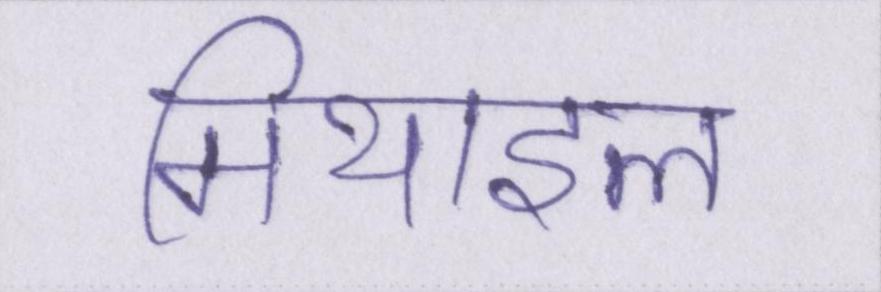 मिथाइल